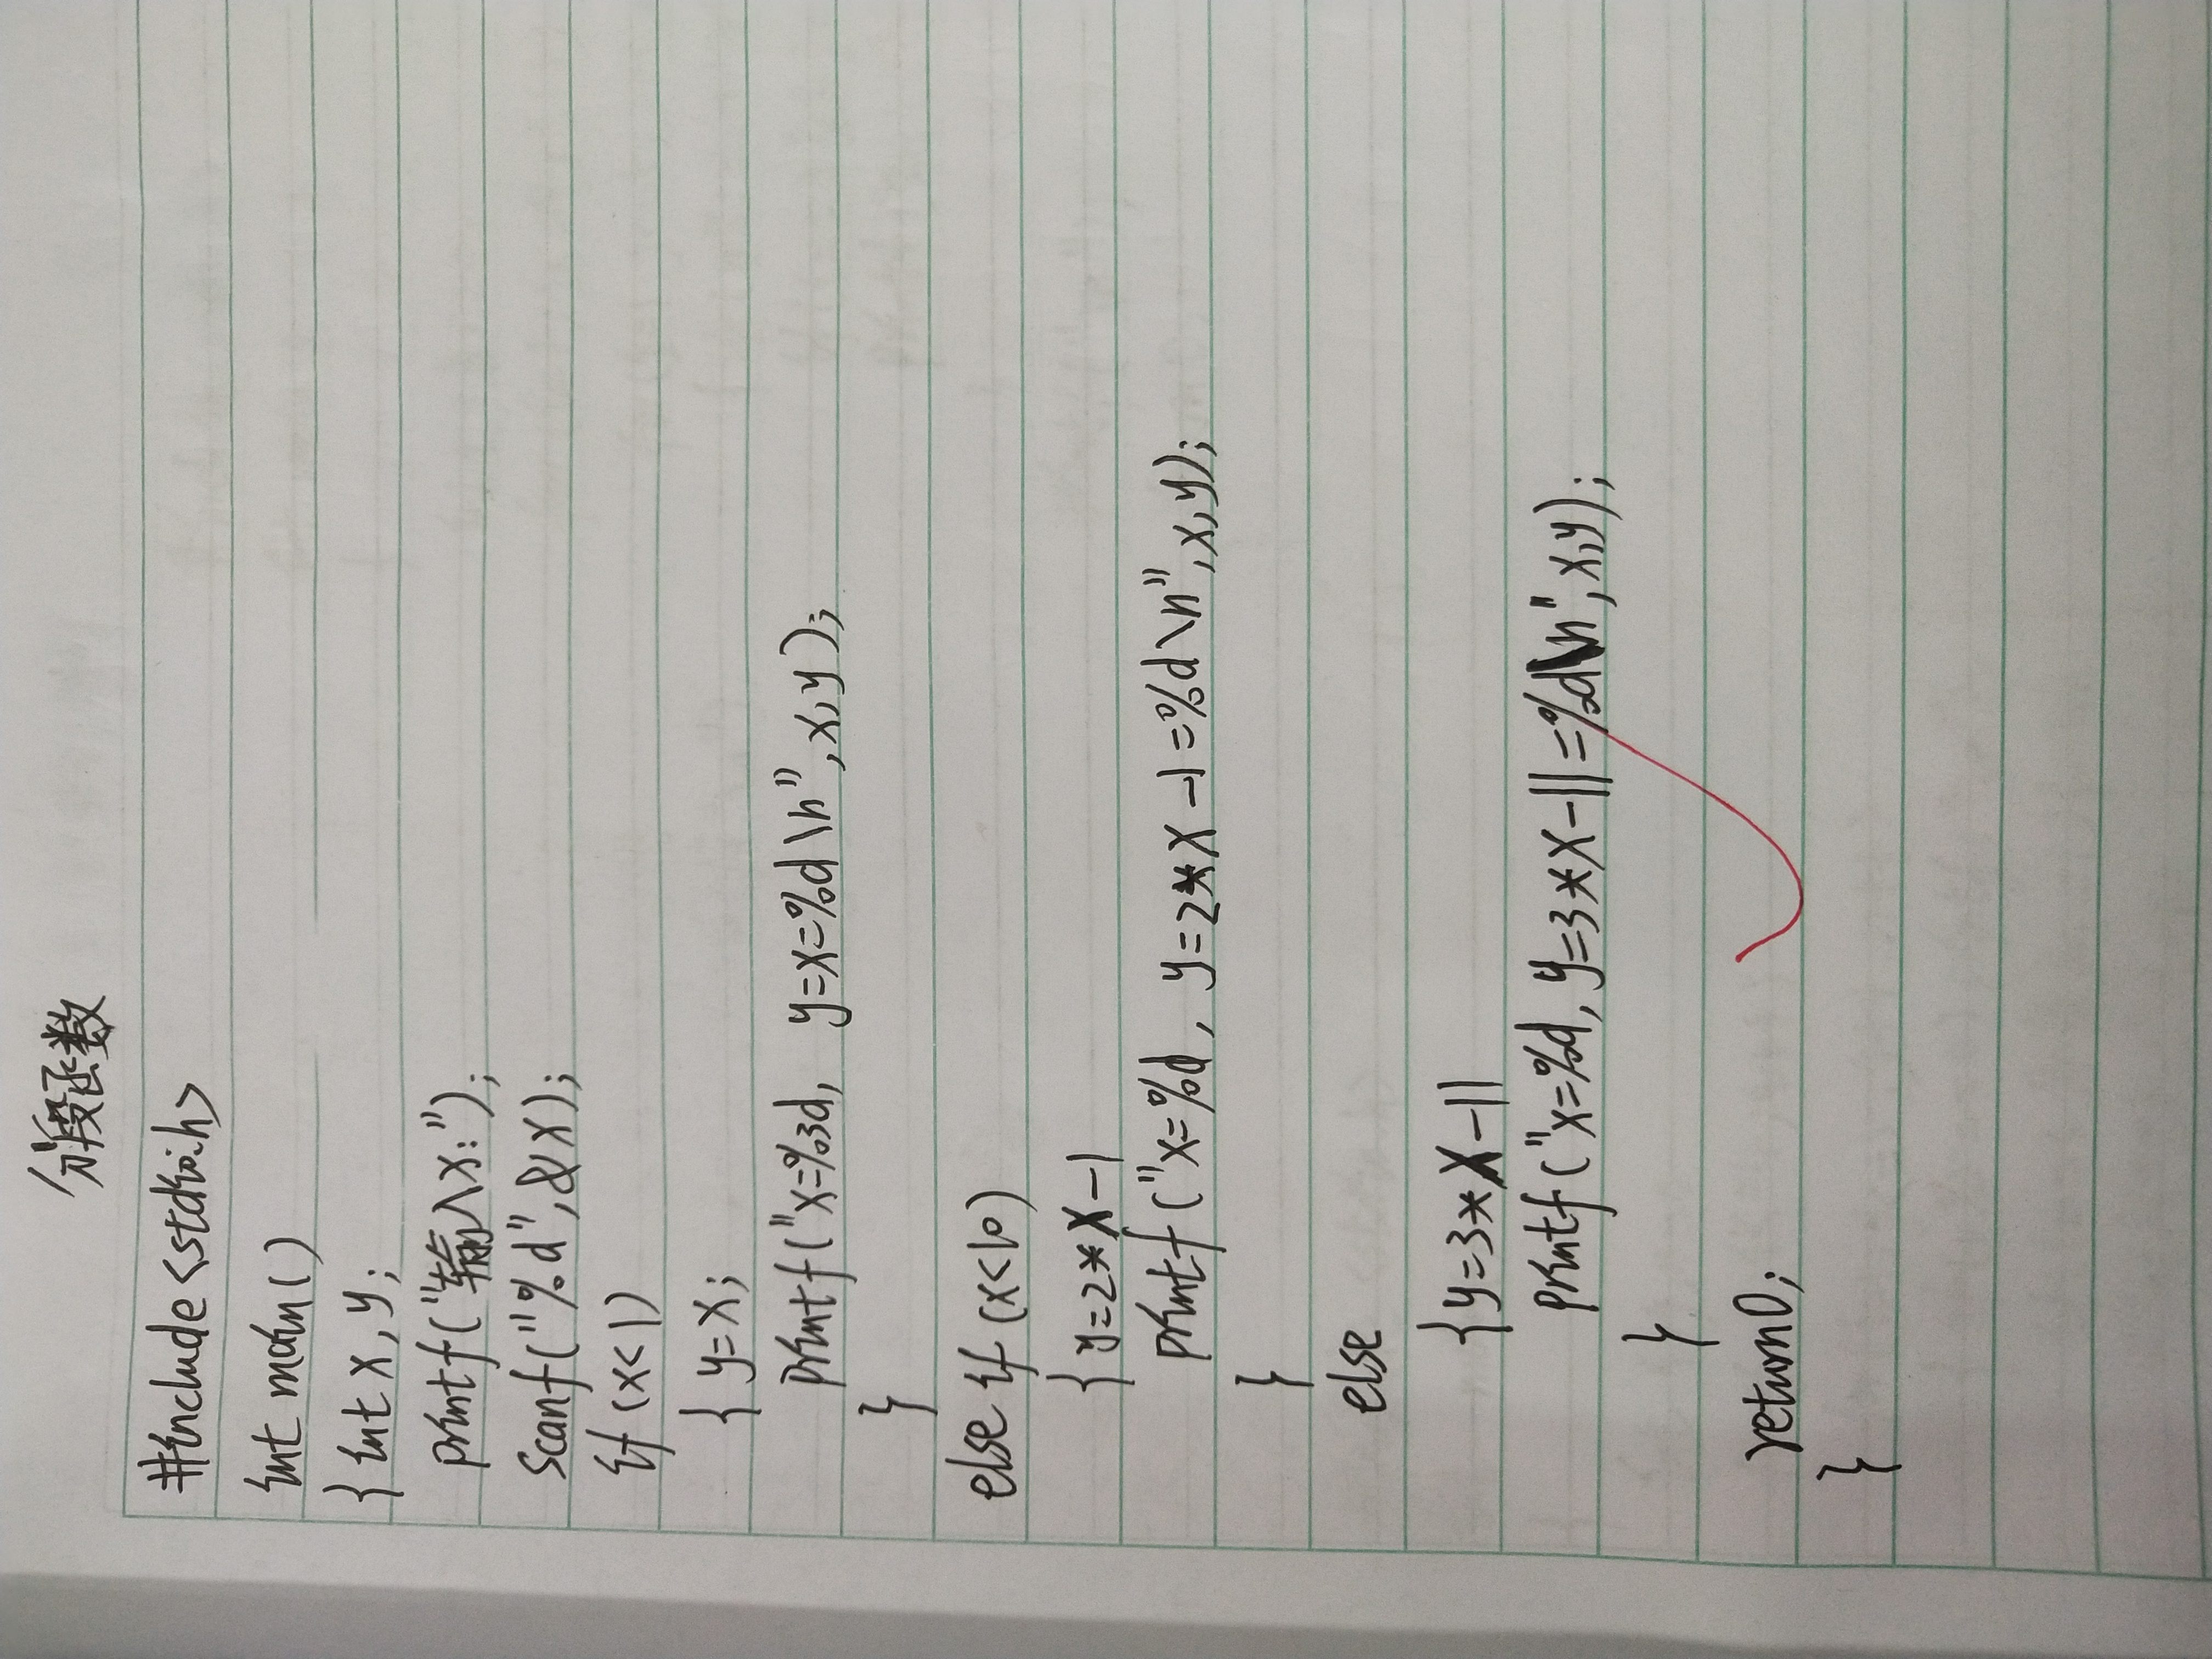 分段函数
#include<stdio.h>
int main()
{ int x,y;
printf("输入x:");
scanf("%d",&x);
if (x<1)
{ y=x;
printf("x=%3d, y=x=%d\n",x,y);
}
else if (x<10)
{ y=2*x-1
printf("x=%d, y=2*x-1=%d\n",x,y);
}
else
{y=3*x-11
printf("x=%d, y=3*x-11=%d\n",x,y);
}
return 0;
}